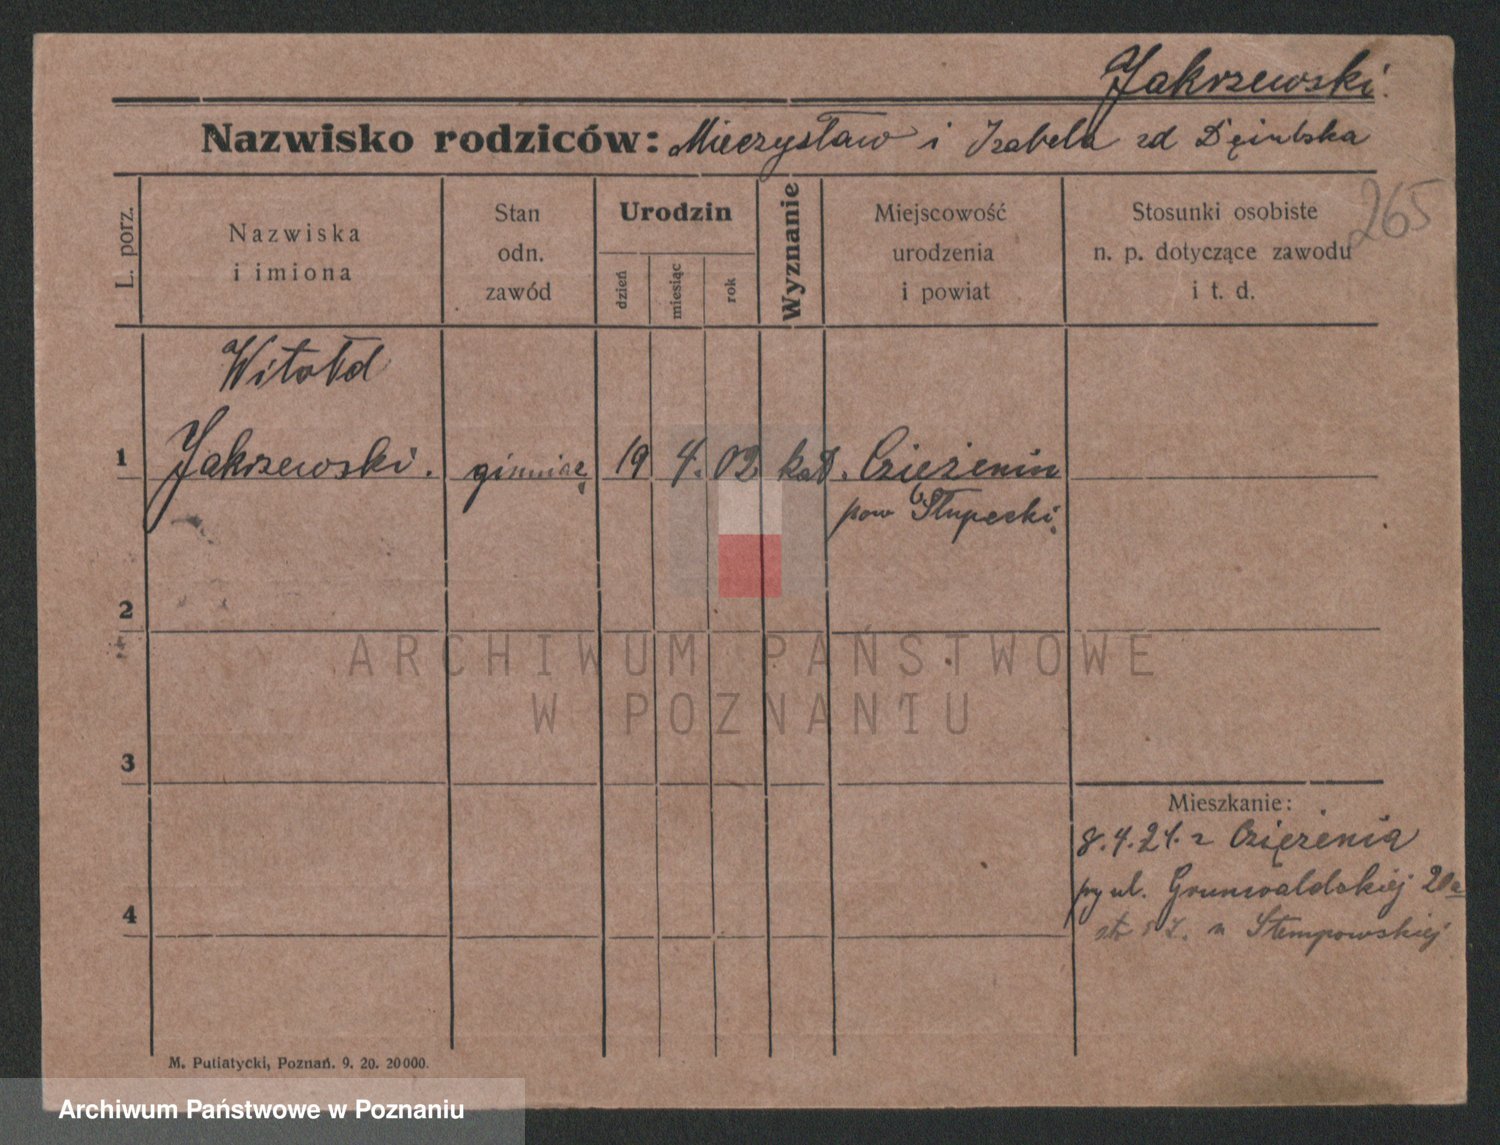 Zakrzewski.
Nazwisko rodziców: Mieczysław i Izabela zd Dęmbska
265
L. porz.
Nazwiska i imiona
Stan odn. zawód
Urodzin
dzień
miesiąc
rok
Wyznanie
Miejscowość urodzenia i powiat
Stosunki osobiste n. p. dotyczące zawodu i t. d.
Witołd
1 Zakrzewski. 19 4. 02 kat. Ciężenin
pow Słupecki.
2
ARCHIWUM PAŃSTWOWE
W POZNANIU
3
Mieszkanie:
8.4.21. z Ciężenia
4
py ul. Grunwaldskiej 20a
u Stempowskiej
M. Putiatycki, Poznań. 9. 20. 20000.
Archiwum Państwowe w Poznaniu